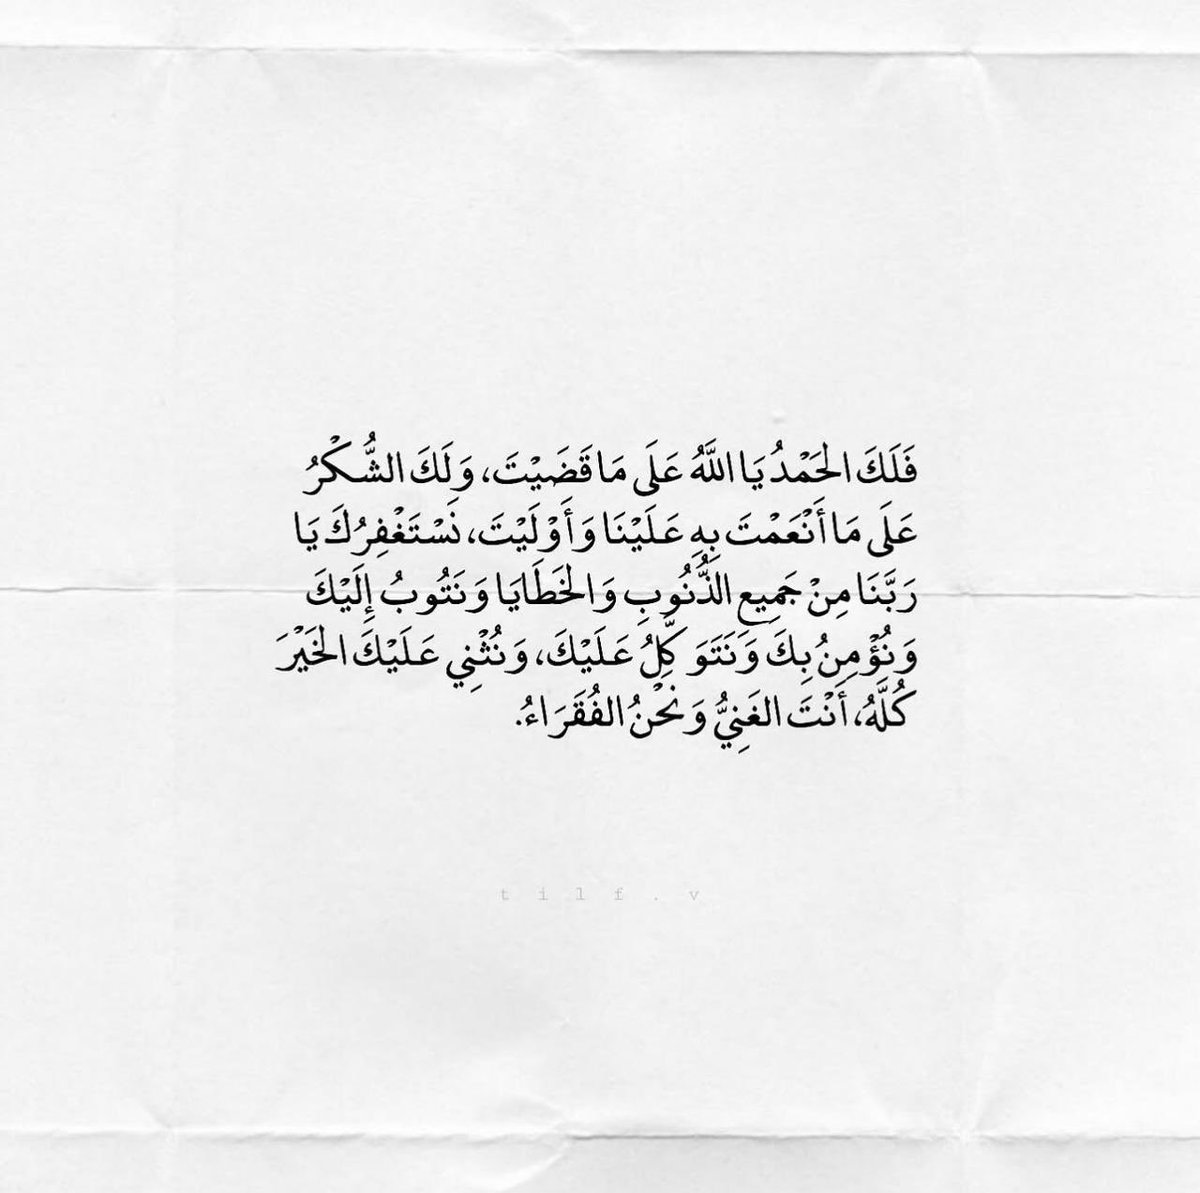 فَلَكَ الحَمْدُ يَا اللَّهُ عَلَى مَا قَضَيْتَ، وَلَكَ الشُّكْرُ
عَلَى مَا أَنْعَمْتَ بِهِ عَلَيْنَا وَأَوْلَيْتَ، نَسْتَغْفِرُكَ يَا
رَبَّنَا مِنْ جَمِيعِ الذُّنُوبِ وَالخَطَايَا وَنَتُوبُ إِلَيْكَ
وَنُؤْمِنُ بِكَ وَنَتَوَكَّلُ عَلَيْكَ، وَنُثْنِي عَلَيْكَ الخَيْرَ
كُلَّهُ، أَنْتَ الغَنِيُّ وَنَحْنُ الفُقَرَاءُ.
tilf.v